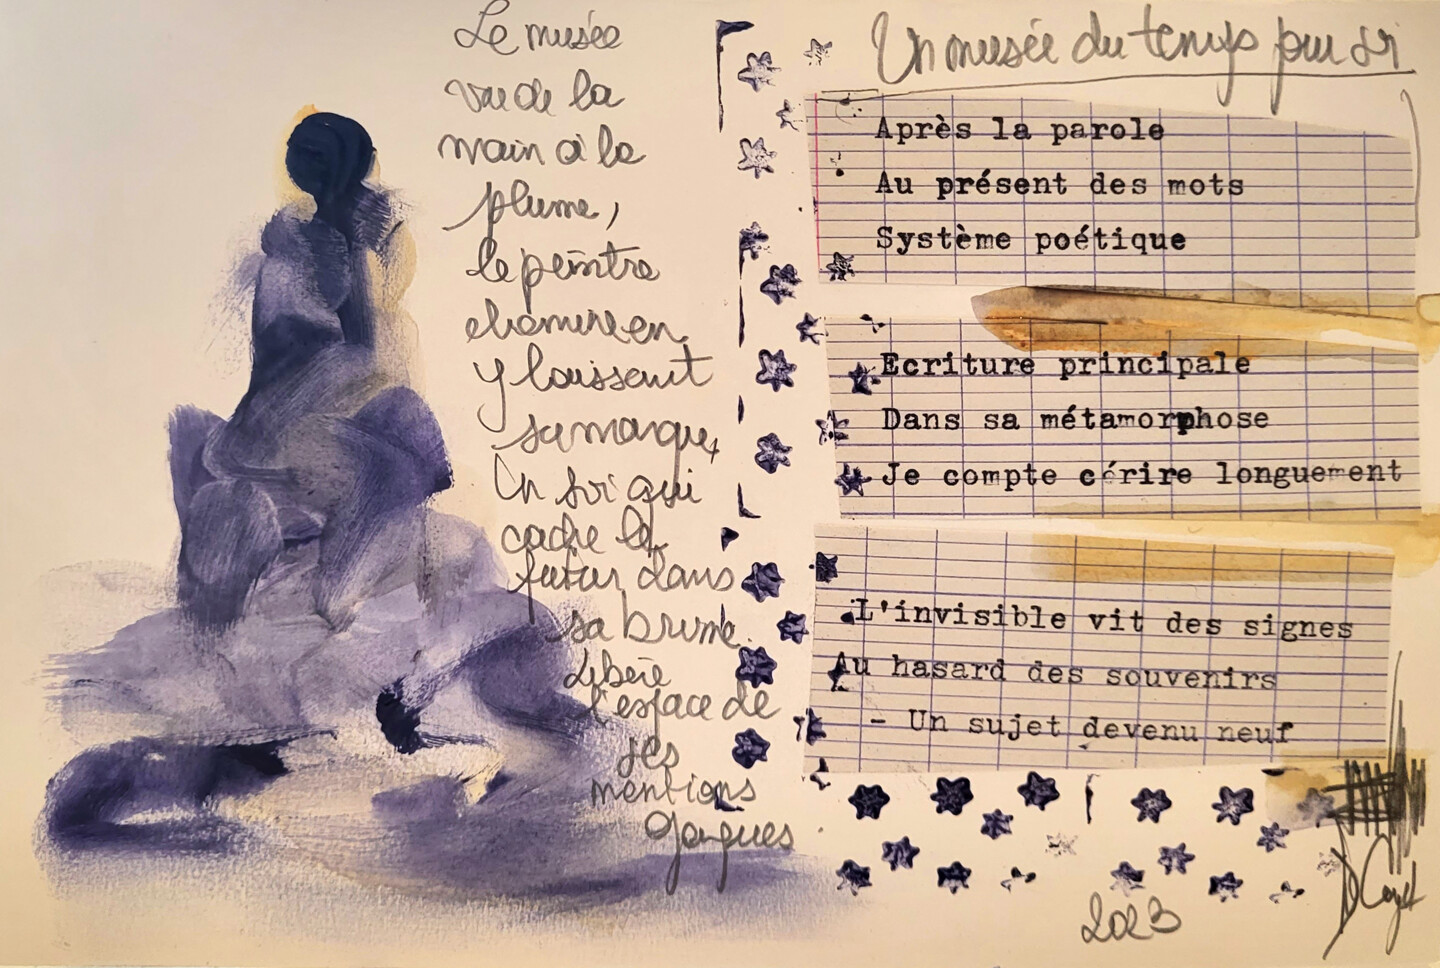 Le musée
va de la
main à la
plume,
le peintre
chemine en
y laissant
sa marque,
Un soi qui
cadre le
futur dans
sa brume.
Libère
l'espace de
ses
mentions
Un musée du temps pour soi
Après la parole
Au présent des mots
Système poétique
Ecriture principale
Dans sa métamorphose
Je compte cérire longuement
L'invisible vit des signes
Au hasard des souvenirs
- Un sujet devenu neuf
2023